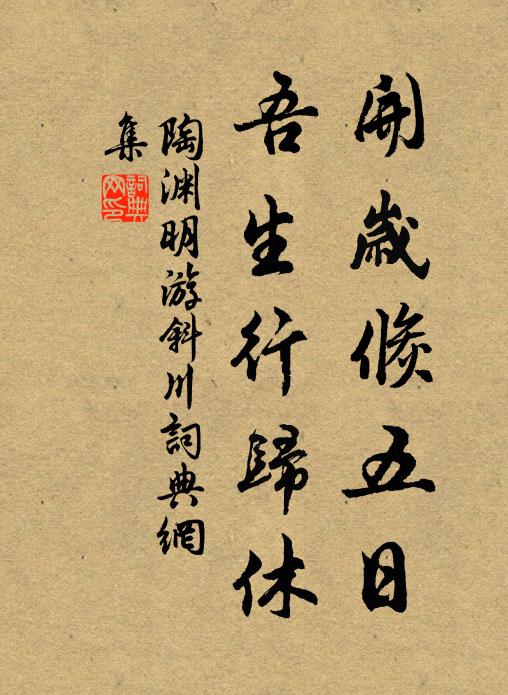 開歲倏五日
吾生行歸休
陶淵明游斜川詞典網
集
詞典
网印